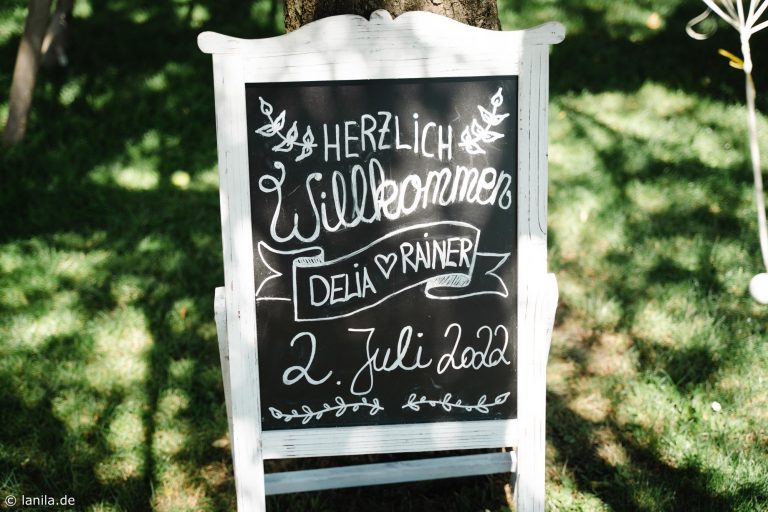 HERZLICH
Willkommen
DELIA ♡ RAINER
2. Juli 2022
© lanila.de